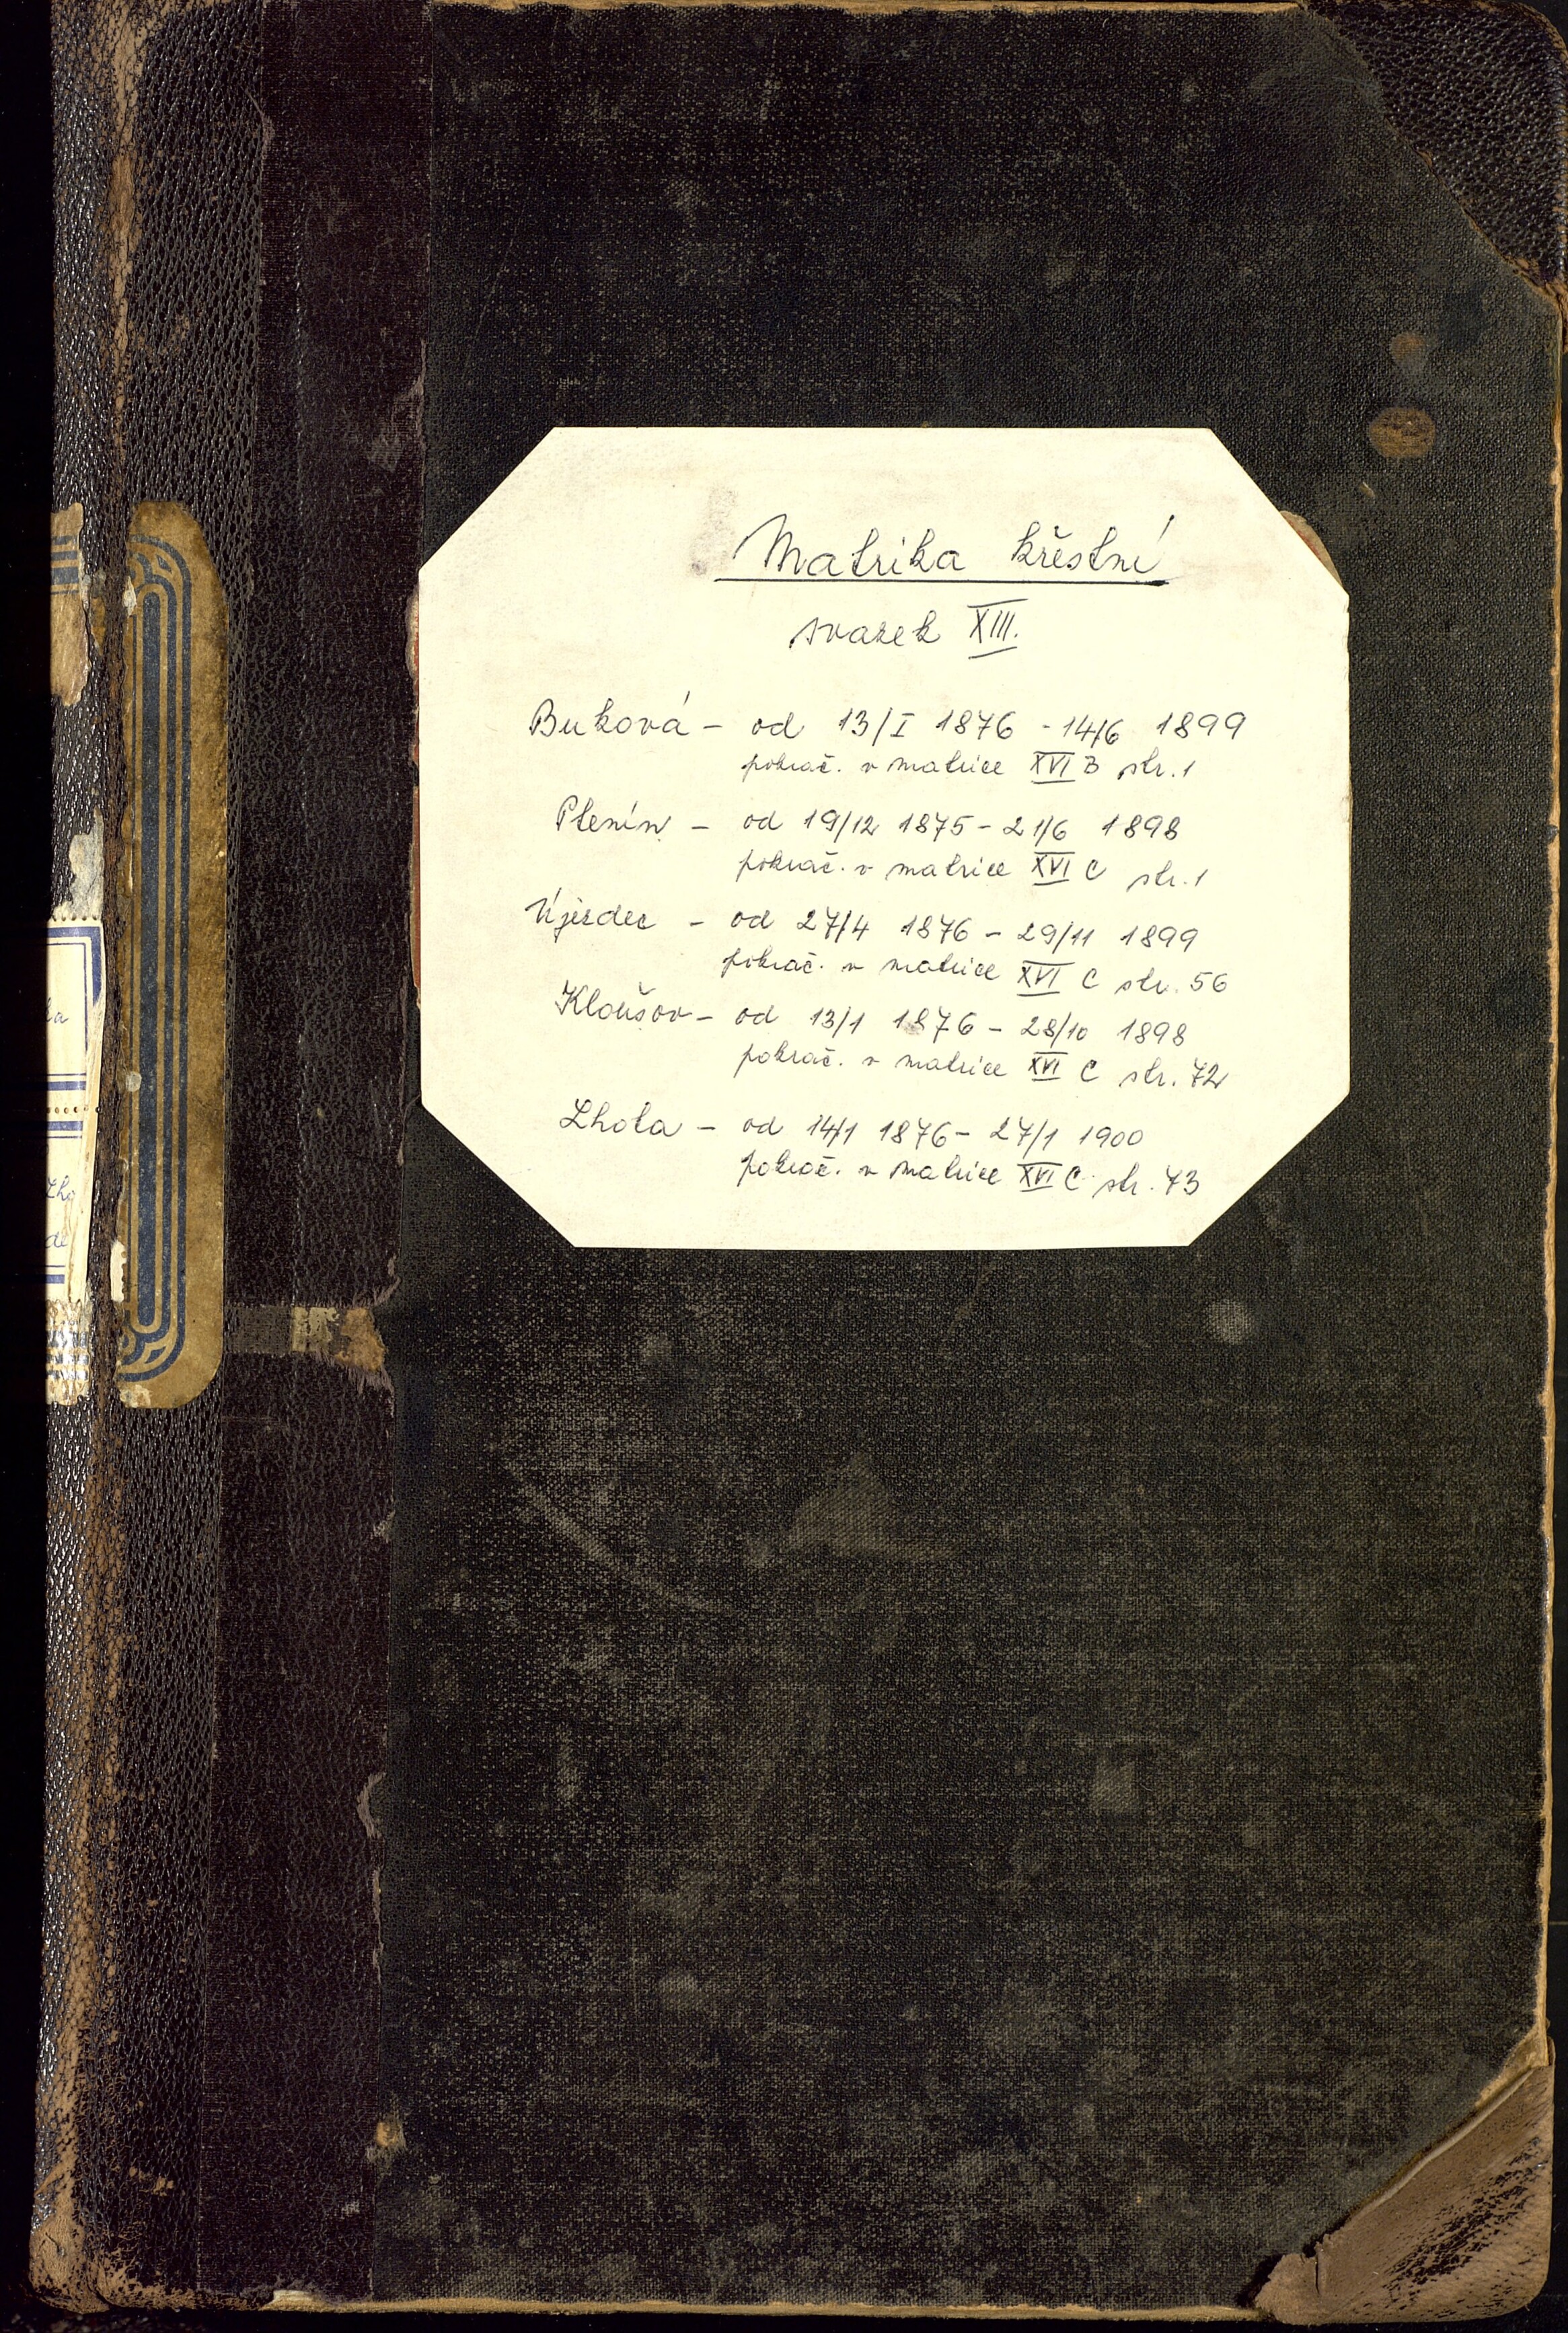 Matrika křestní
svazek XIII.
Buková – od 13/I 1876 - 14/6 1899
pokrač. v matrice XVI B str. 1
Ptenín – od 19/12 1875 – 21/6 1898
pokrač. v matrice XVI C str. 1
Újezdec – od 27/4 1876 – 29/11 1899
pokrač. v matrice XVI C str. 56
Kloušov – od 13/1 1876 – 28/10 1898
pokrač. v matrice XVI C str. 72
Lhota – od 14/1 1876 – 27/1 1900
pokrač. v matrice XVI C str. 73